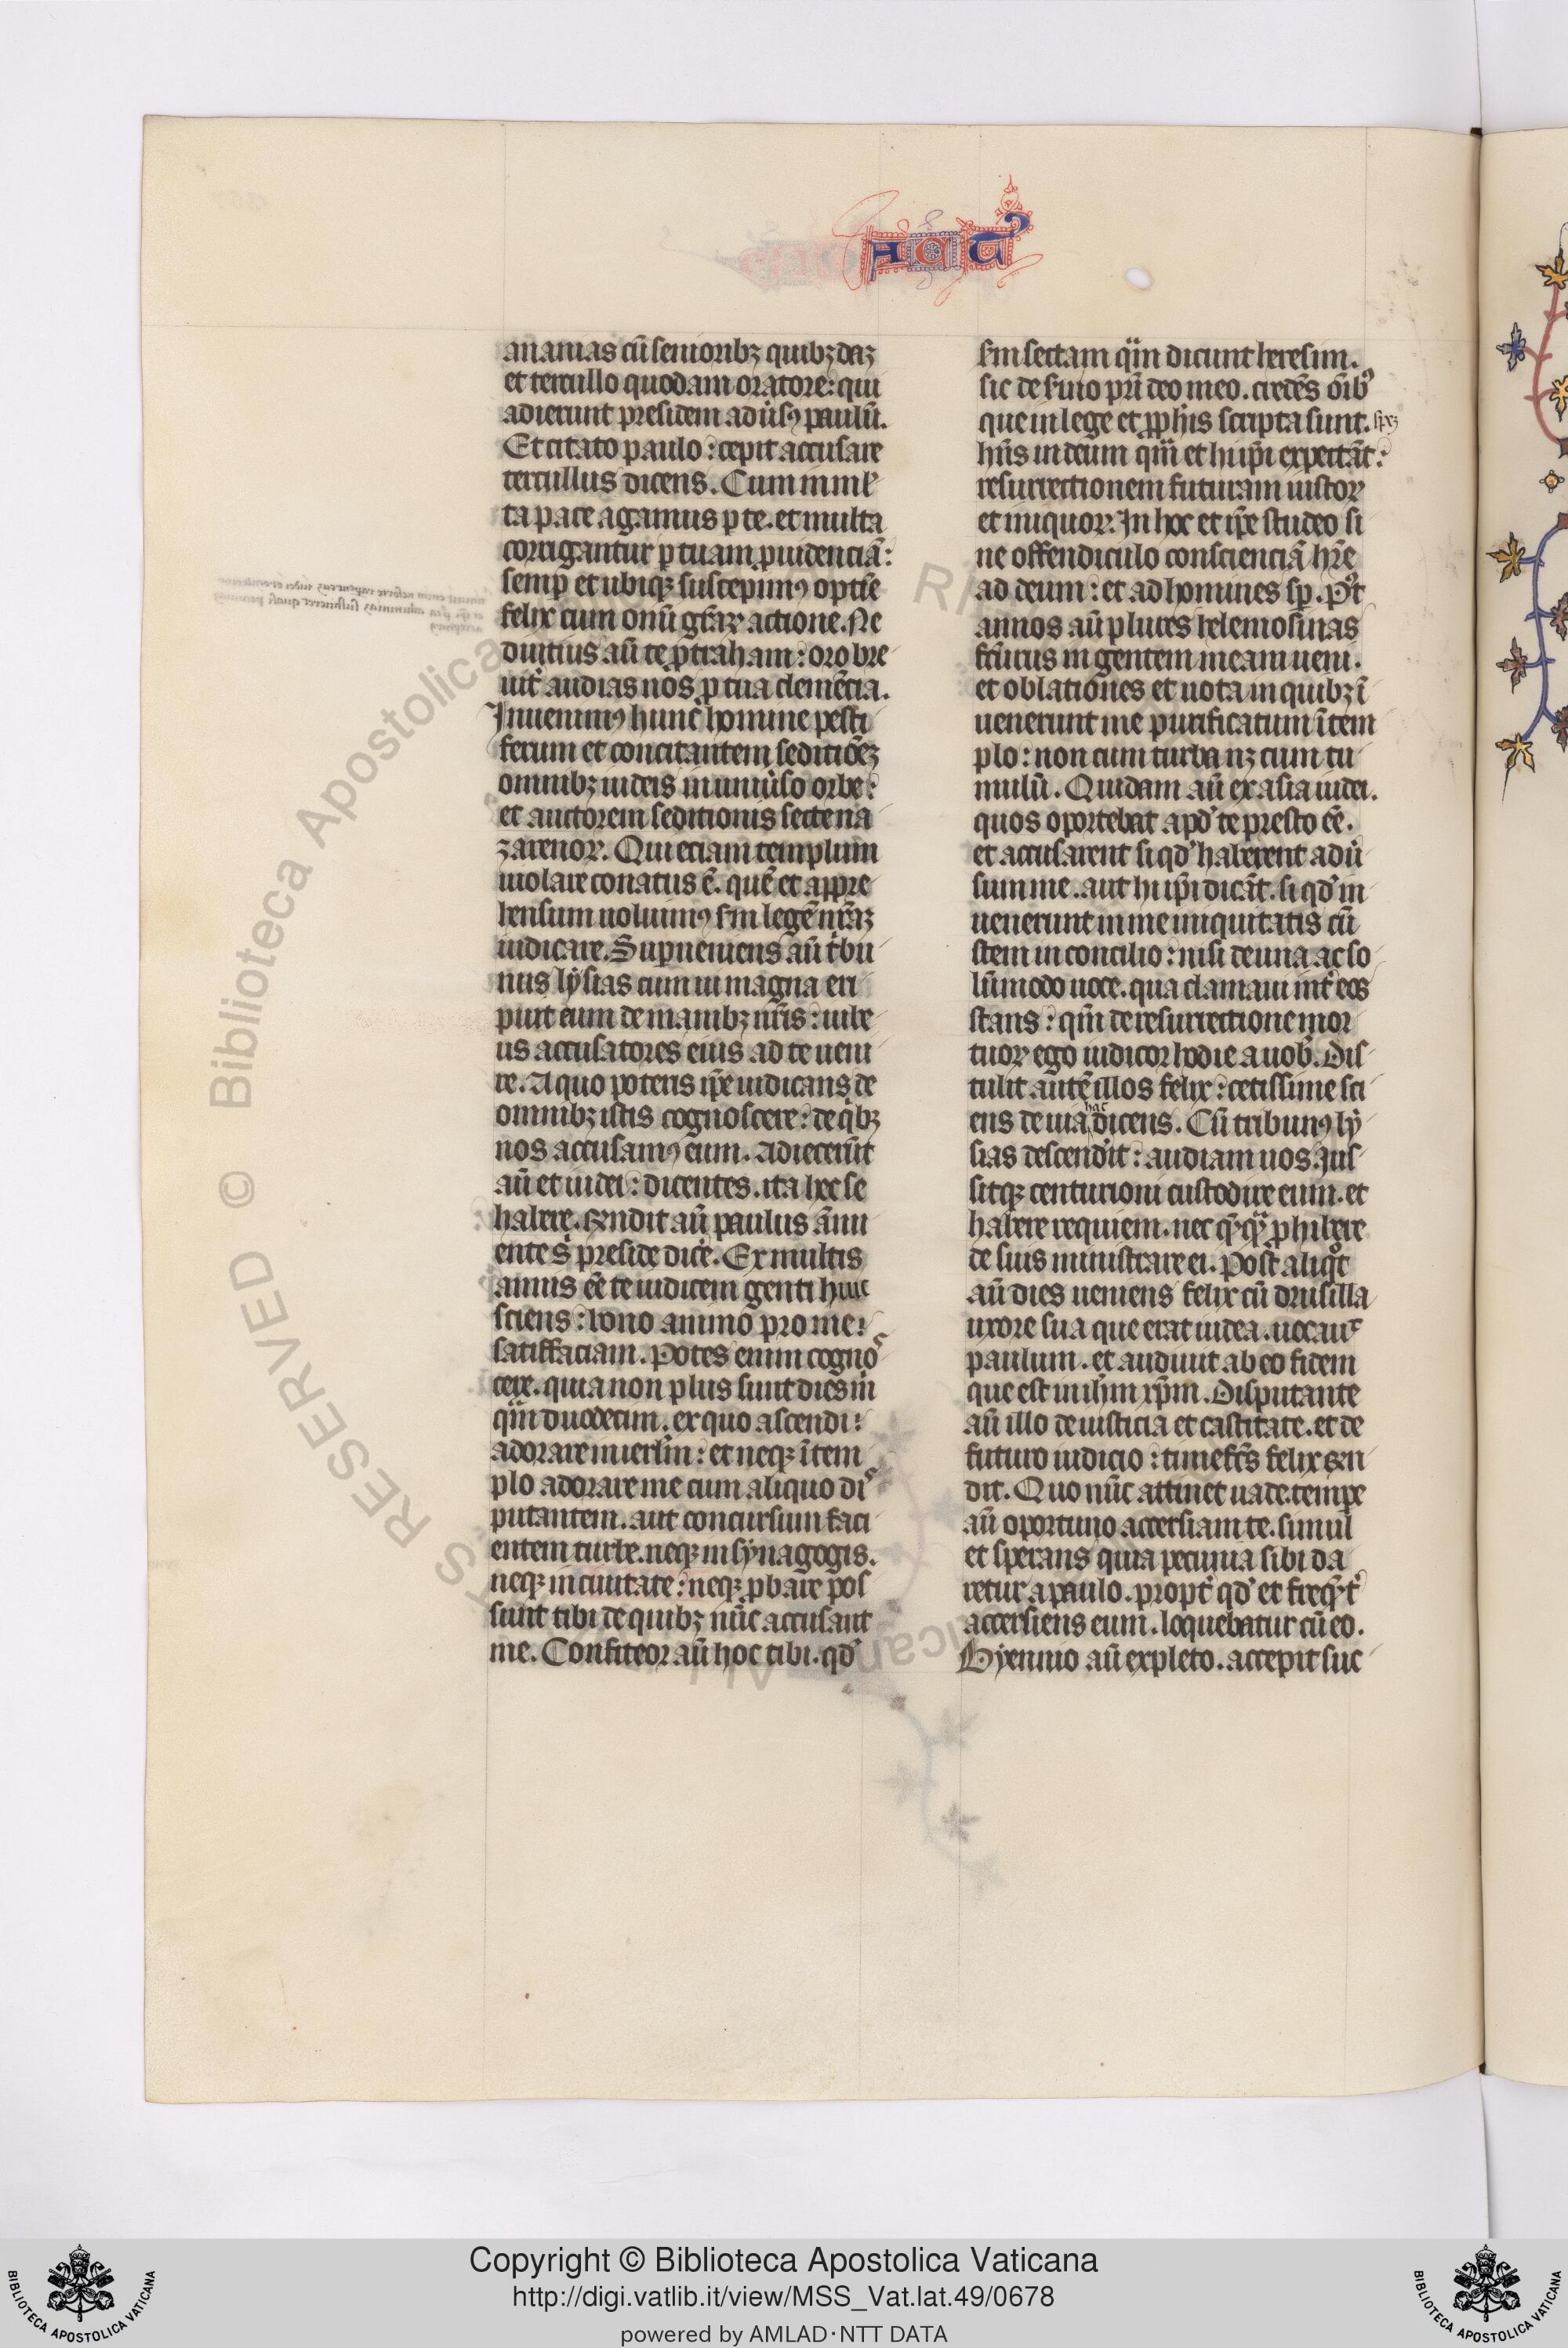 ACT᾽
ananias cū senioribꝫ quibꝫdaꝫ
et tertullo quodam oratore: qui
adierunt presidem adūsꝰ paulū.
Et citato paulo: cepit accusare
tertullus dicens. Cum in ml᾽
ta pace agamus ꝑ te. et multa
corrigantur ꝑ tuam ꝓuidenciā:
semꝑ et ubiqꝫ suscepimꝰ optīe
felix cum om̄i gr̄aꝝ actione. Ne
diutius aū te ꝓtraham: oro bre
uit᾽ audias nos ꝓ tua clemēcia.
Inuenimꝰ hunc homine pesti
ferum et concitantem seditiōeꝫ
omnibꝫ iudeis in uniūso orbe:
et auctorem seditionis secte na
zarenoꝝ. Qui eciam templum
uiolare conatus ē. quē et appre
hensum uoluimꝰ sm̄ legē nr̄aꝫ
iudicare. Suꝑueniens aū t᾽bu
nus lẏsias cum ui magna eri
puit eum de manibꝫ nr̄is: iube
us accusatores eius ad te ueni
re. A quo poteris ip̄e iudicans de
omnibꝫ istis cognoscere: de q᾽bꝫ
nos accusamꝰ eum. Adiecerūt
aū et iudei: dicentes. ita hec se
habere. Rn̄dit aū paulus ānu
ente s᾽ preside dic᾽e. Ex multis
annis eē te iudicem genti huic
sciens: bono animo pro me:
satisfaciam. Potes enim cognos
cere. quia non plus sunt dies m᾽
qm̄ duodecim. ex quo ascendi:
adorare in ierl̄m: et neqꝫ ī tem
plo adorare me cum aliquo dis
putantem. aut concursum faci
entem turbe. neqꝫ in sẏnagogis.
neqꝫ in ciuitate: neqꝫ ꝓbare pos
sunt tibi de quibꝫ nūc accusant
me. Confiteor aū hoc tibi. qd᾽
sm̄ sectam qm̄ dicunt heresim.
sic deseruio pr̄i deo meo. credēs oīb᾽
que in lege et ꝓph̄is scripta sunt. speꝫ
hn̄s in deum qm̄ et hi ip̄i expectāt:
resurrectionem futuram iustoꝝ
et iniquoꝝ. In hoc et ip̄e studeo si
ne offendiculo conscienciā hr̄e
ad deum: et ad homines sꝑ. Pꝰt
annos aū pluces helemosinas
fc̄urus in gentem meam ueni.
et oblationes et uota in quibꝫ ī
uenerunt me purificatum ī tem
plo: non cum turba nꝫ cum tu
multū. Quidam aū ex asia iudei.
quos oportebat apd᾽ te presto eē.
et accusarent si qd᾽ haberent adū
sum me. aut hi ip̄i dicāt. si qd᾽ in
uenerunt in me iniquitatis cū
stem in concilio: nisi de una ac so
lūmodo uoce. qua clamaui int᾽ eos
stans: qm̄ de resurrectione mor
tuoꝝ ego iudicor hodie a uob᾽. Dis
tulit autē illos felix: cetissime sci
ens de uia hac dicens. Cū tribunꝰ lẏ
sias descendit: audiam uos. Jus
sitqꝫ centurioni custodire eum. et
habere requiem. nec qͣqͣꝫ prohibere
de suis ministrare ei. Post aliqᵒt
aū dies ueniens felix cū drusilla
uxore sua que erat iudea. uocauᵗ
paulum. et audiuit ab eo fidem
que est in ih̄m xp̄m. Disputante
aū illo de iusticia et castitate. et de
futuro iudicio: timefc̄s felix ren
dit. Quo nūc attinet uade. tempe
aū oportuno accersiam te. simul
et sperans quia pecunia sibi da
retur a paulo. propt᾽ qd᾽ et freqͣt᾽
accersiens eum. loquebatur cū eo.
Byennio aū expleto. accepit suc
© Biblioteca Apostolica Vaticana
RIGHTS RESERVED
Copyright © Biblioteca Apostolica Vaticana
http://digi.vatlib.it/view/MSS_Vat.lat.49/0678
powered by AMLAD·NTT DATA
BIBLIOTECA APOSTOLICA VATICANA
BIBLIOTECA APOSTOLICA VATICANA